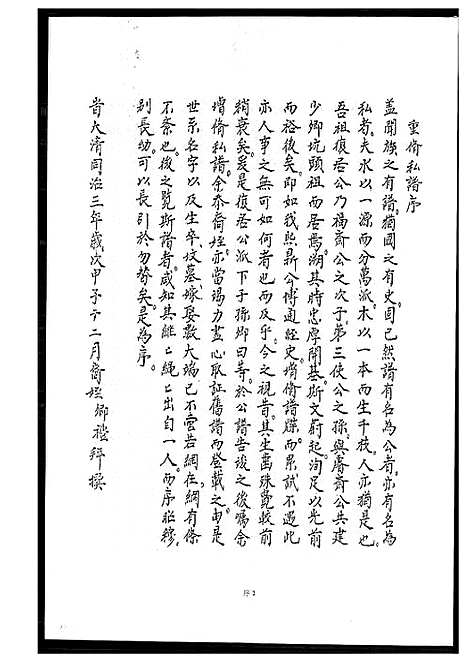 重脩私譜序
蓋聞族之有譜猶國之有史固已然譜有名為公者亦有名為
私者夫水以一源而分萬派木以一本而生千枝人亦猶是也
吾祖復居公乃福齋公之次子弟三使公之孫與睿齋公共建
少卿坑頭祖而居焉溯其時忠厚開基斯文蔚起洵足以光前
而裕後矣即如我熙鼎公博通經史增脩譜牒而累試不遇此
亦人事之無可如何者也而及乎今之視昔其生齒殊覺較前
稍衰矣爰是復居公派下子孫卿曰等於公譜告竣之後囑余
增脩私譜余忝裔姪亦當竭力盡心取証舊譜而登載之由是
世系名字以及生卒墳墓嫁娶數大端已不啻若網在綱有條
不紊也後之覽斯譜者咸知其繩繩出自一人而序昭穆
別長幼可以長引於勿替矣是為序
旹大清同治三年歲次甲子十二月裔姪卿禮拜撰
序2